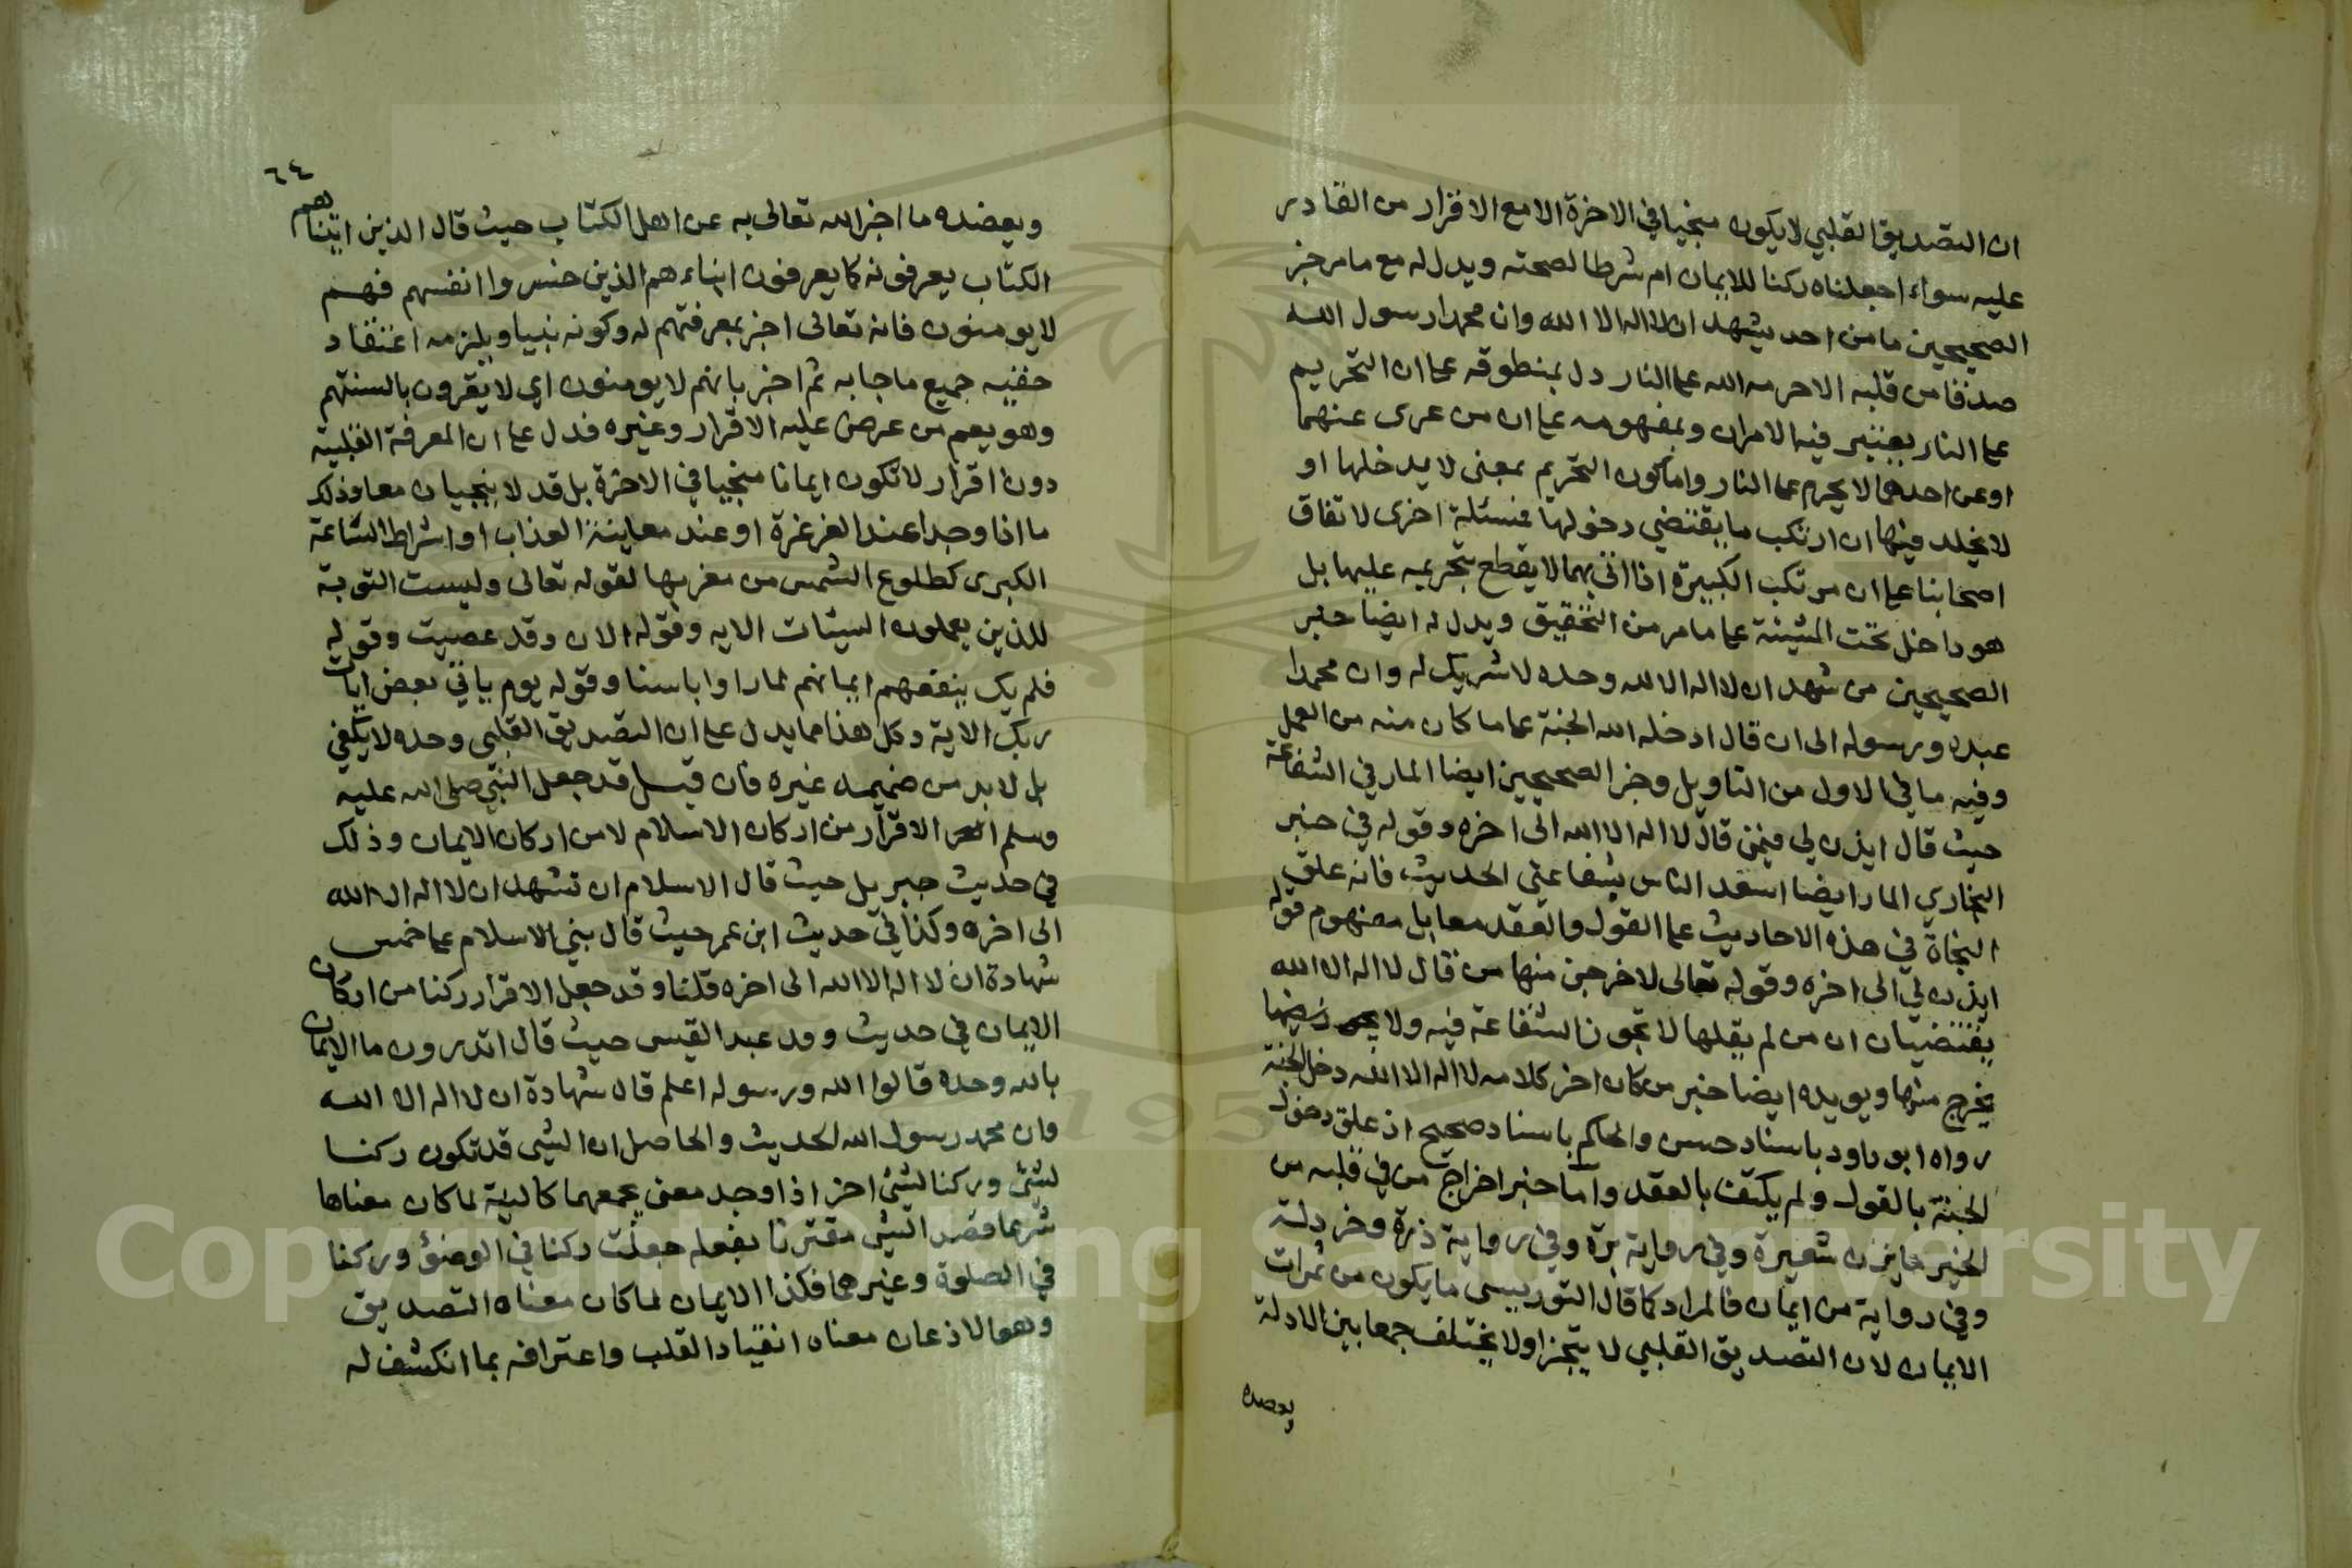 ان التصديق القلبي لا يكون منجيا في الاخرة الا مع الاقرار من القادر
عليه سواء اجعلناه ركنا للايمان ام شرطا لصحته ويدل له مع ما مر خبر
الصحيحين ما من احد يشهد ان لا اله الا الله وان محمدا رسول الله
صدقا من قلبه الا حرمه الله على النار دل بمنطوقه على ان التحريم
على النار يعتبر فيه الامران وبمفهومه على ان من عرى عنهما
او عن احدهما لا يحرم على النار واما كون التحريم بمعنى لا يدخلها او
لا يخلد فيها ان ارتكب ما يقتضي دخولها فمسئلة اخرى لاتفاق
اصحابنا على ان مرتكب الكبيرة اذا اتى بهما لا يقطع بتحريمه عليها بل
هو داخل تحت المشيئة على ما مر من التحقيق ويدل له ايضا خبر
الصحيحين من شهد ان لا اله الا الله وحده لا شريك له وان محمدا
عبده ورسوله الى ان قال ادخله الله الجنة على ما كان منه من العمل
وفيه ما في الاول من التاويل وخبر الصحيحين ايضا المار في الشفاعة
حيث قال ايذن لي فيمن قال لا اله الا الله الى اخره وقوله في خبر
البخاري المار ايضا اسعد الناس بشفاعتي الحديث فانه علق
النجاة في هذه الاحاديث على القول والعقد معا بل مفهوم قوله
ايذن لي الى اخره وقوله تعالى لاخرجن منها من قال لا اله الا الله
يقتضيان ان من لم يقلها لا تجوز الشفاعة فيه ولا
يخرج منها ويويده ايضا خبر من كان اخر كلامه لا اله الا الله دخل الجنة
رواه ابو داود باسناد حسن والحاكم باسناد صحيح اذ علق دخول
الجنة بالقول ولم يكتف بالعقد واما خبر اخراج من في قلبه من
الخير ما يزن شعيرة وفي رواية برة وفي رواية ذرة وخردلة
وفي رواية من ايمان فالمراد كما قال التوربيسى ما يكون من ثمرات
الايمان لان التصديق القلبي لا يتجزا ولا يختلف جمعا بين الادلة
ويعضده
٦٤
ويعضده ما اخبر الله تعالى به عن اهل الكتاب حيث قال الذين اتيناهم
الكتاب يعرفونه كما يعرفون ابناءهم الذين خسروا انفسهم فهم
لا يومنون فانه تعالى اخبر بمعرفتهم له وكونه نبيا ويلزمه اعتقاد
حقيه جميع ما جا به ثم اخبر بانهم لا يومنون اي لا يقرون بالسنتهم
وهو يعم من عرض عليه الاقرار وغيره فدل على ان المعرفة القلبية
دون اقرار لا تكون ايمانا منجيا في الاخرة بل قد لا ينجيان معا وذلك
ما اذا وجدا عند الغرغرة او عند معاينة العذاب او اشراط الساعة
الكبرى كطلوع الشمس من مغربها لقوله تعالى وليست التوبة
للذين يعملون السيئات الايه وقوله الان وقد عصيت وقوله
فلم يك ينفعهم ايمانهم لما راوا باسنا وقوله يوم ياتي بعض ايات
ربك الاية وكل هذا مما يدل على ان التصديق القلبي وحده لا يكفي
بل لا بد من ضميمه غيره فان قيل قد جعل النبي صلى الله عليه
وسلم الاقرار من اركان الاسلام لا من اركان الايمان وذلك
في حديث جبريل حيث قال الاسلام ان تشهد ان لا اله الا الله
الى اخره وكذا في حديث ابن عمر حيث قال بني الاسلام على خمس
شهادة ان لا اله الا الله الى اخره قلنا وقد جعل الاقرار ركنا من اركان
الايمان في حديث وفد عبد القيس حيث قال اتدرون ما الايمان
بالله وحده قالوا الله ورسوله اعلم قال شهادة ان لا اله الا الله
وان محمد رسول الله الحديث والحاصل ان الشى قد تكون ركنا
لشئ وركنا لشئ اخر اذا وجد معنى يجمعهما كالنية لما كان معناها
شرعا قصد الشئ مقترنا بفعله جعلت ركنا في الوضؤ وركنا
في الصلوة وغيرهما فكذا الايمان لما كان معناه التصديق
وهو الاذعان معناه انقياد القلب واعترافه بما انكشف له
Copyright © King Saud University
195